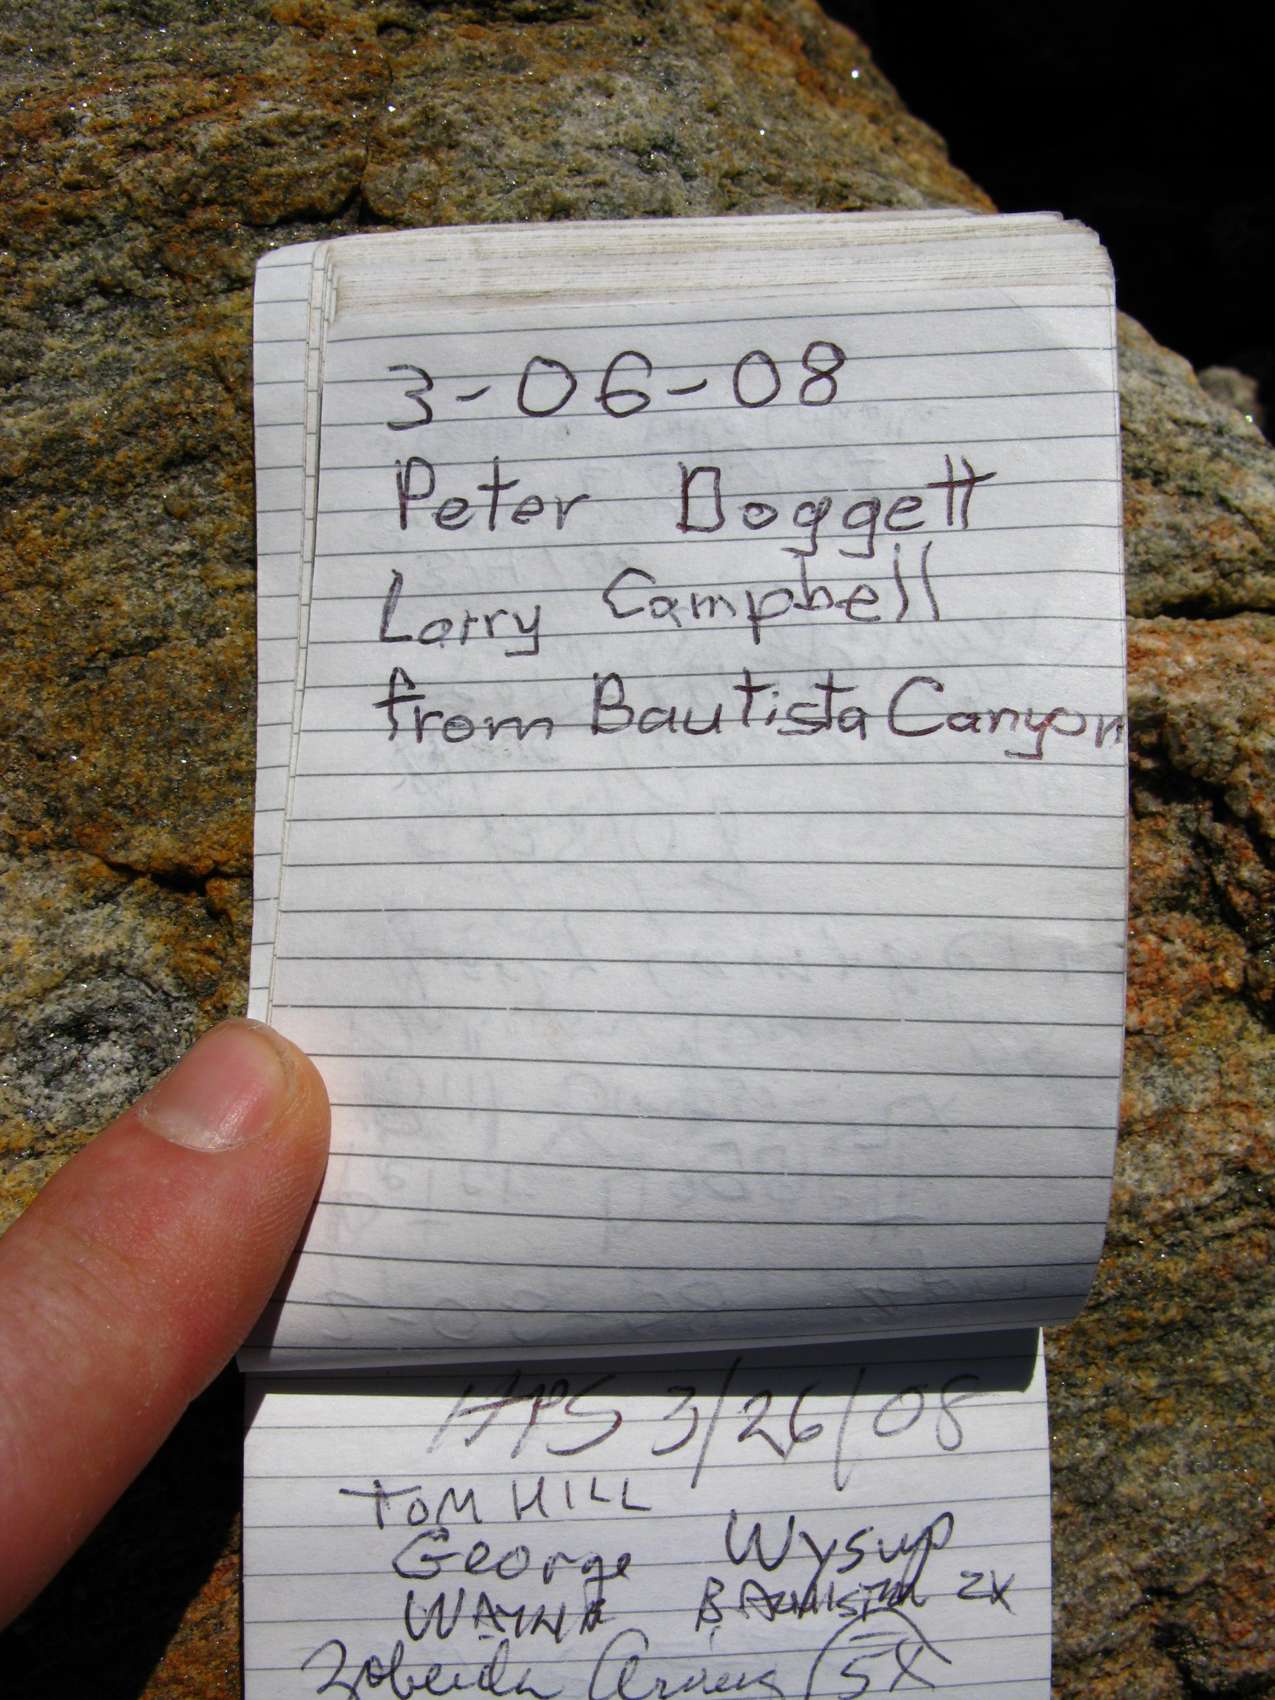 3-06-08
Peter Doggett
Larry Campbell
from Bautista Canyon
HPS 3/26/08
TOM HILL
George Wysup
WAYNE 2X
5X